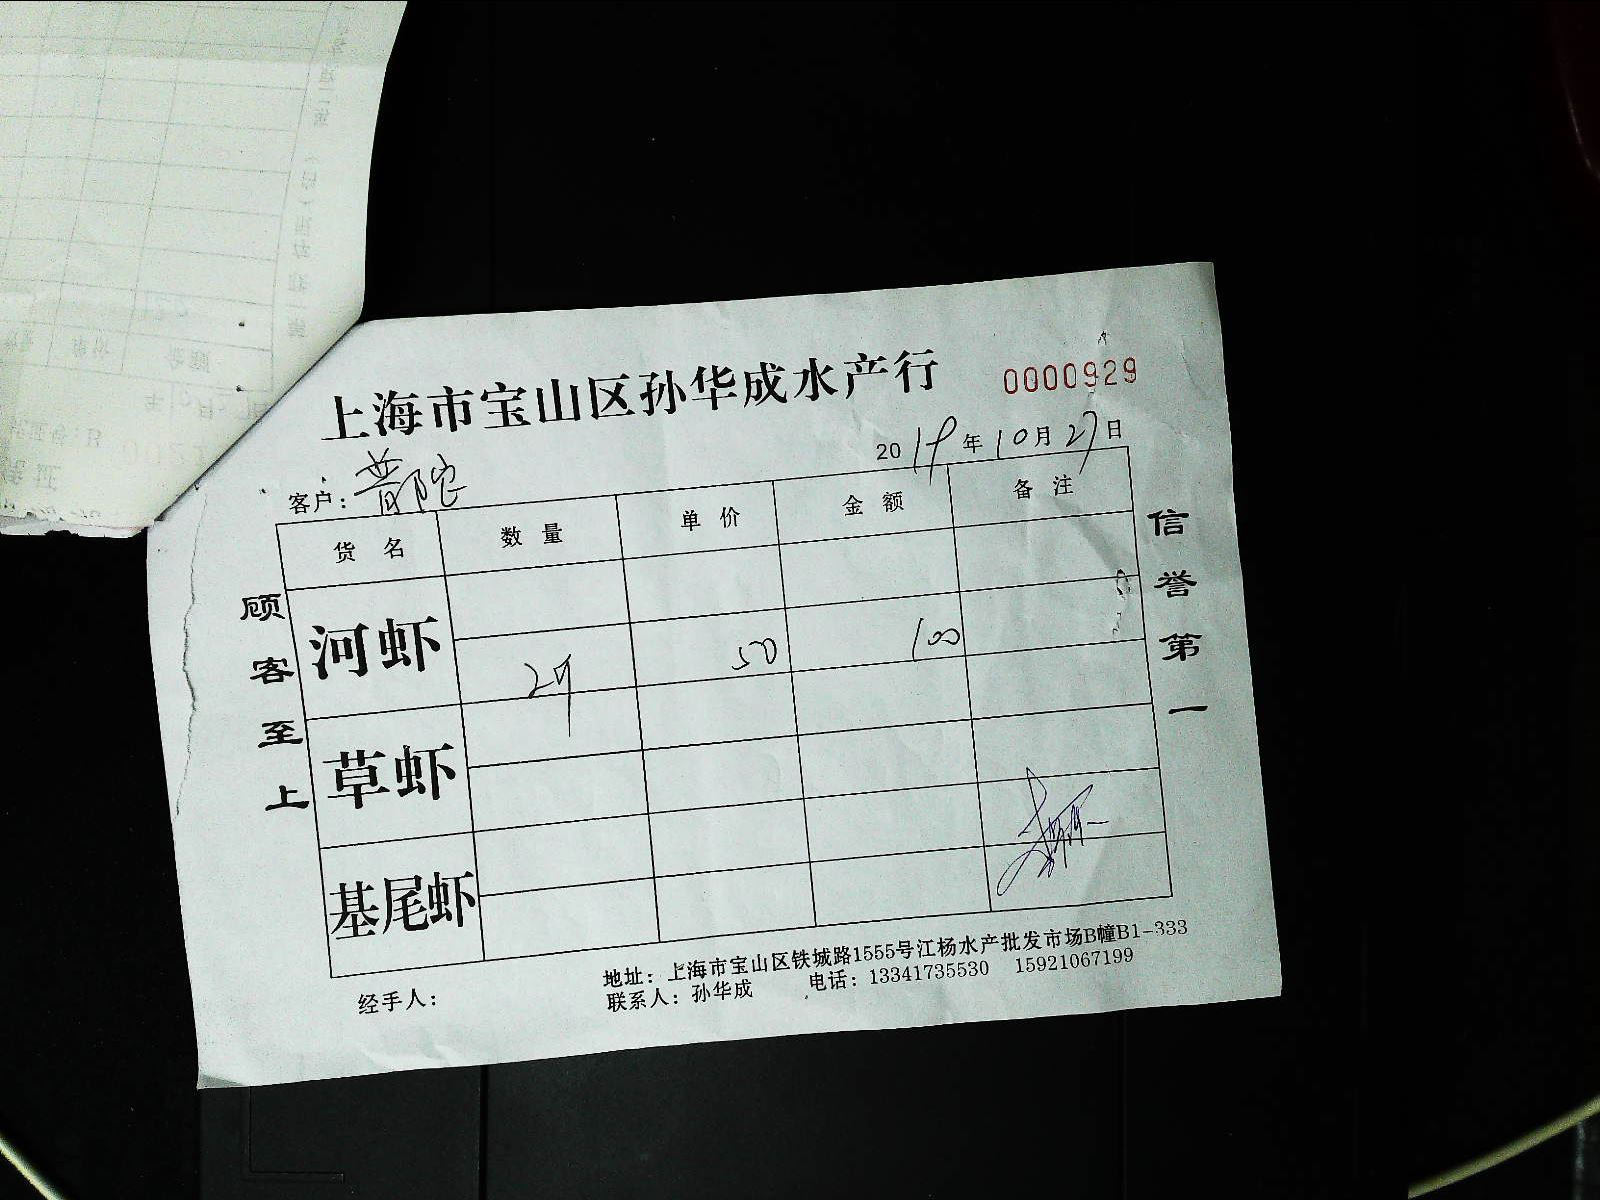 上海市宝山区孙华成水产行
0000929
2019年10月27日
客户：普陀
货名 数量 单价 金额 备注
河虾 2斤 50 100
草虾
基尾虾
顾客至上
信誉第一
地址：上海市宝山区铁城路1555号江杨水产批发市场B幢B1-333
经手人： 联系人：孙华成 电话：13341735530 15921067199